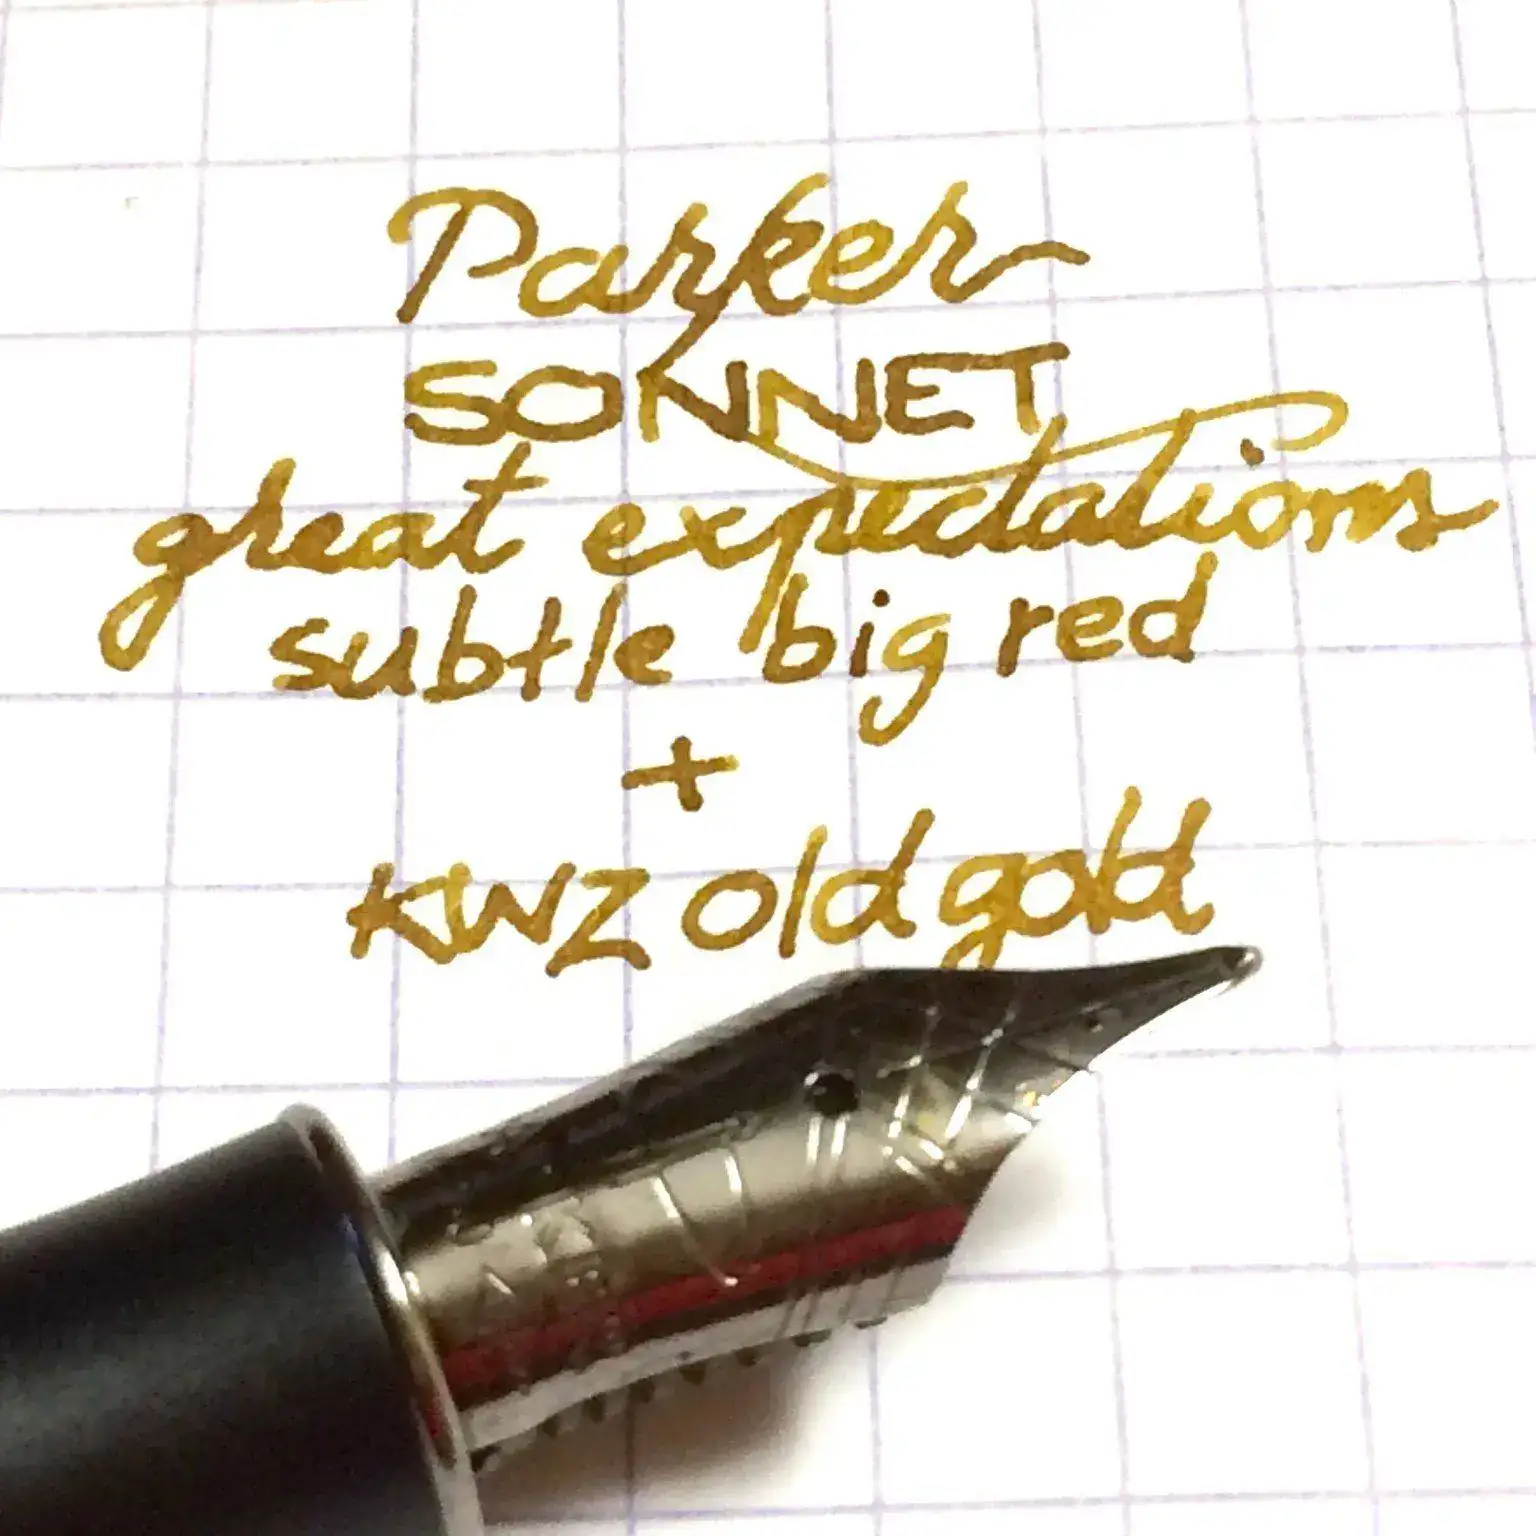 Parker
SONNET
great expectations
subtle big red
+
KWZ old gold